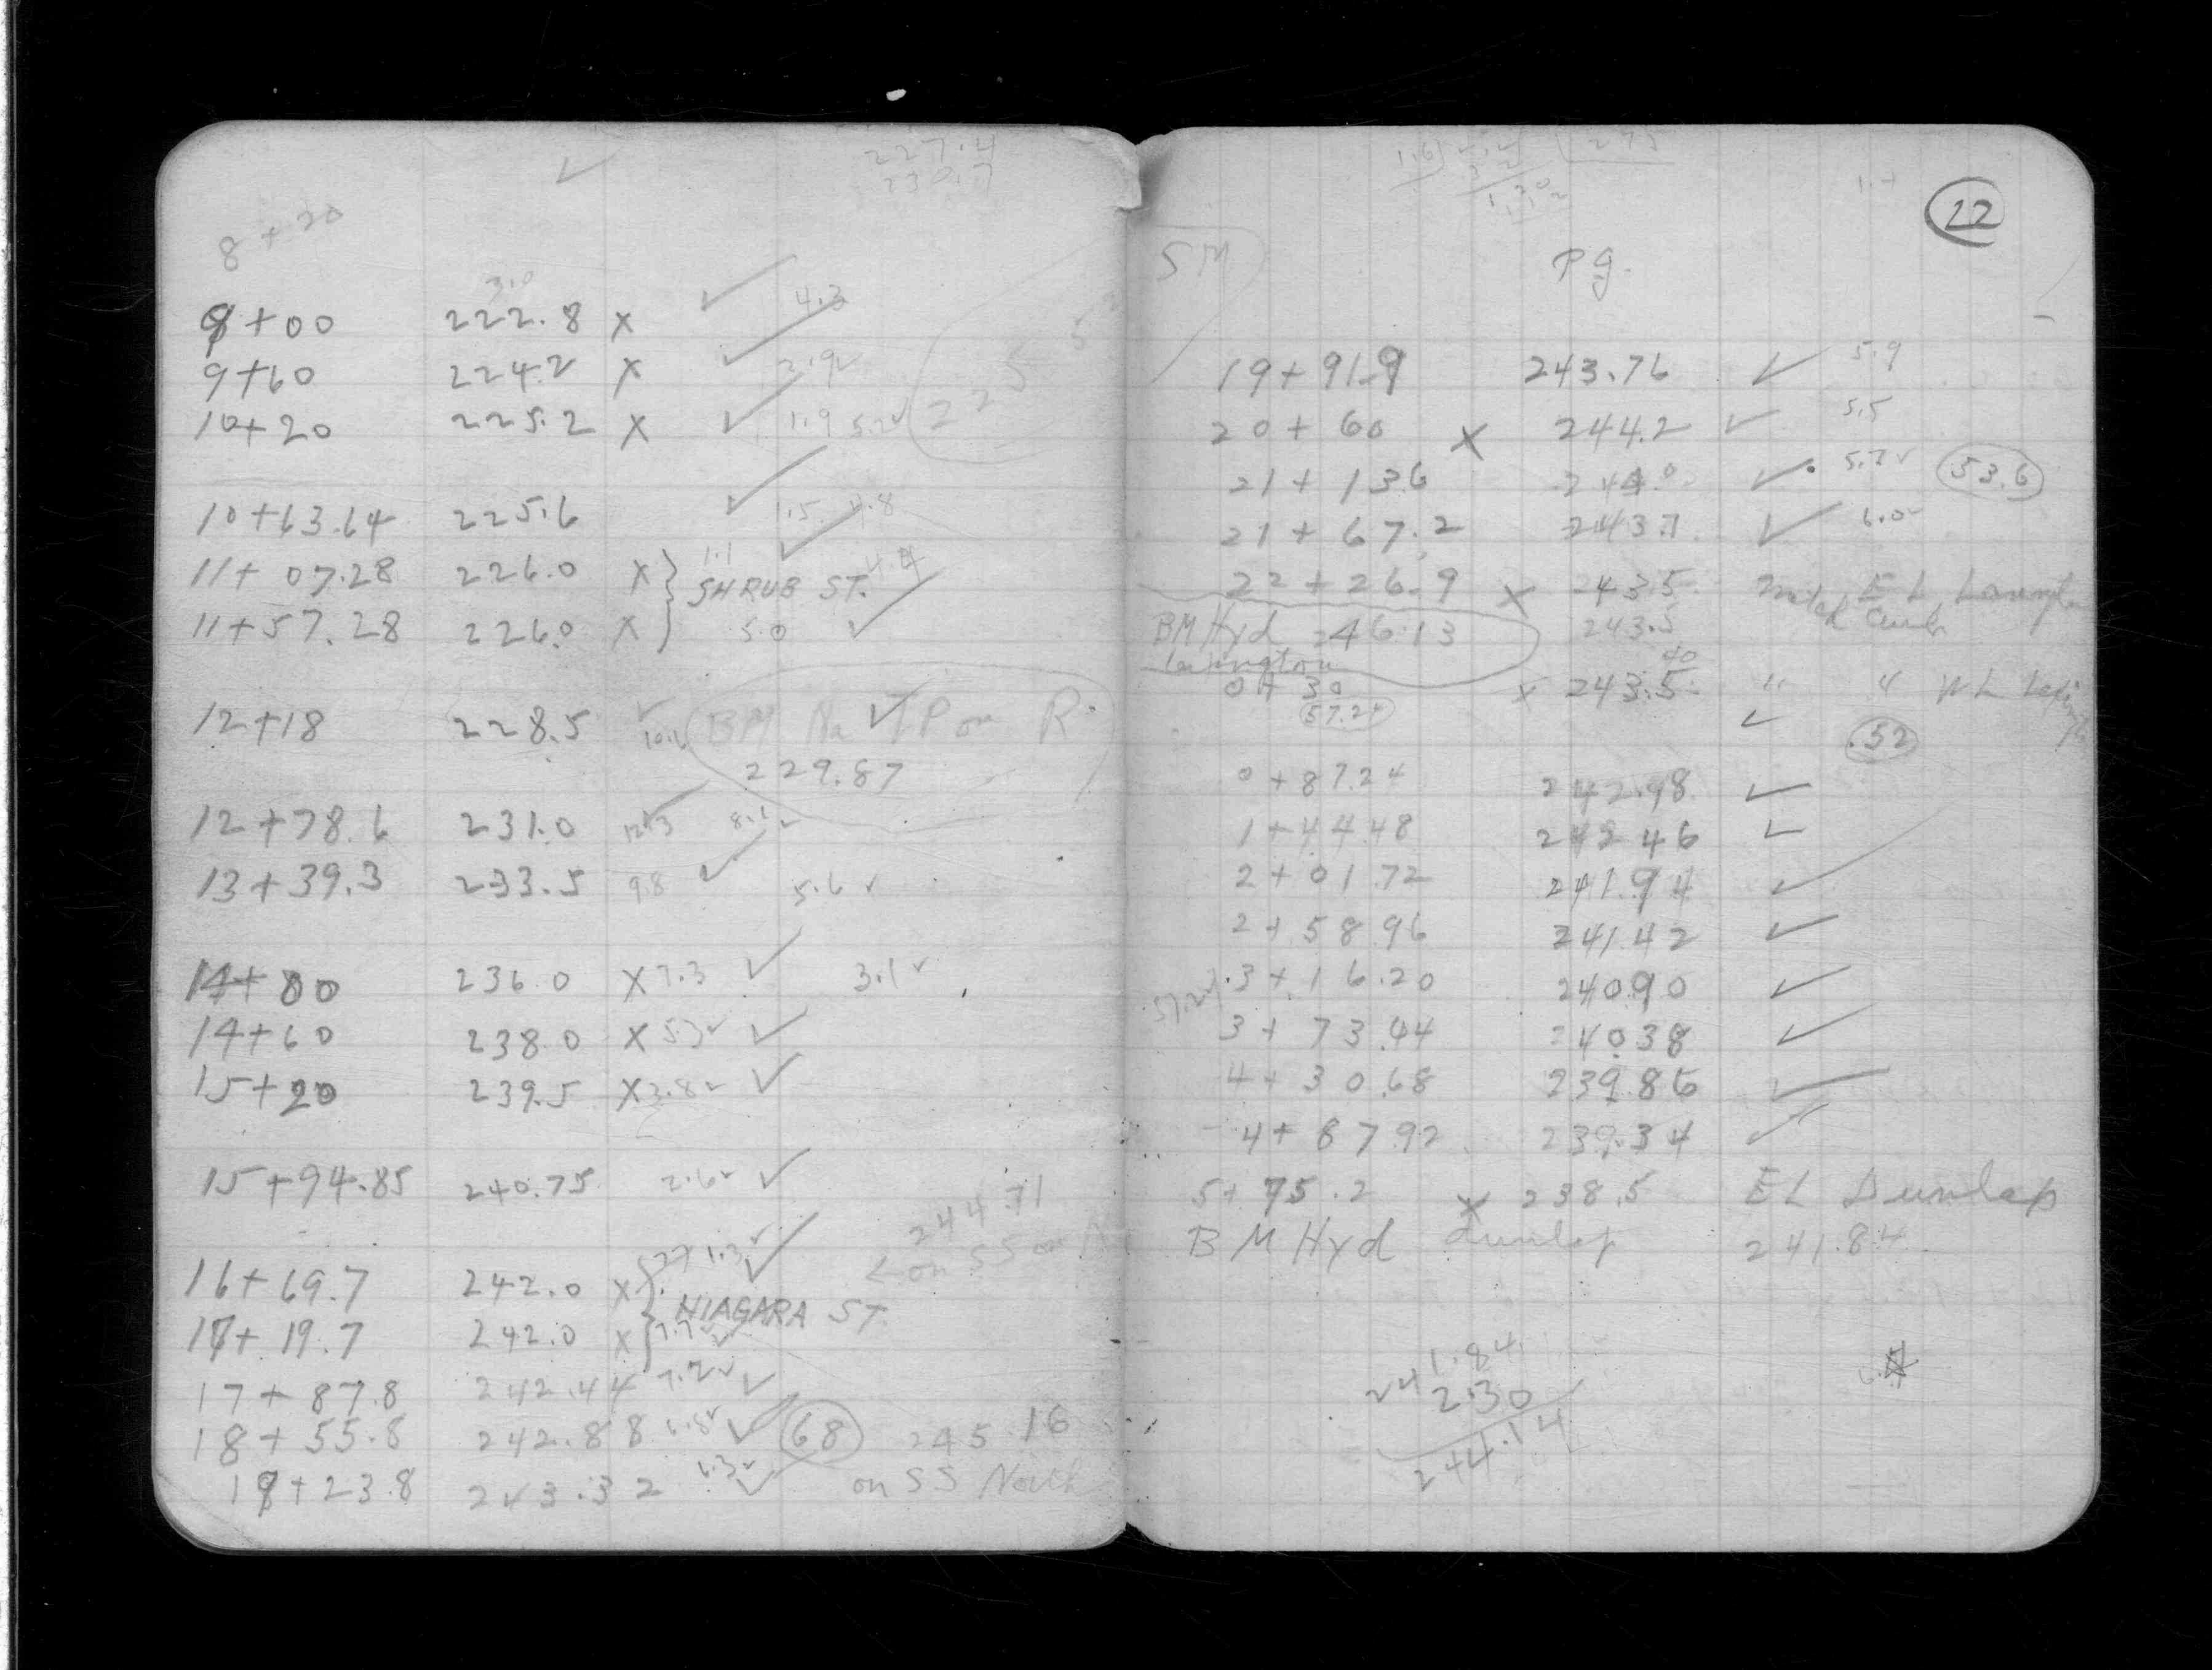 227.4
230.7
8+20
3.0
9+00 222.8 x ✓ 4.3
9+60 224.2 x ✓ 2.9
10+20 225.2 x ✓ 1.9 5.2
10+63.64 225.6 ✓ 1.5 4.8
11+07.28 226.0 x 1.1 ✓ 4.4
SHRUB ST.
11+57.28 226.0 x 5.0 ✓
12+18 228.5 ✓ BM TP on R
229.87
12+78.6 231.0 12.3 8.1 ✓
13+39.3 233.5 9.8 ✓ 5.6 ✓
14+00 236.0 x 7.3 ✓ 3.1 ✓
14+60 238.0 x 5.3 ✓ ✓
15+20 239.5 x 3.8 ✓ ✓
15+94.85 240.75 2.6 ✓ ✓
244.71
on SS on
16+69.7 242.0 x 1.3 ✓ ✓
NIAGARA ST.
17+19.7 242.0 x 7.7 ✓
17+87.8 242.44 7.2 ✓ ✓
18+55.8 242.88 6.8 ✓ ✓ 68 245.16
19+23.8 243.32 6.3 ✓ ✓ on SS North
22
SM
Pg.
19+91.9 243.76 ✓ 5.9
20+60 x 244.2 ✓ 5.5
21+13.6 244.0 ✓ 5.7 ✓ 53.6
21+67.2 243.7 ✓ 6.0
22+26.9 x 243.5 EL
BM Hyd 246.13 243.5
Lexington 40
0+30 x 243.5 " " WL
57.24 ✓ .52
0+87.24 242.98 ✓
1+44.48 242.46 ✓
2+01.72 241.94 ✓
2+58.96 241.42 ✓
57.24 3+16.20 240.90 ✓
3+73.44 240.38 ✓
4+30.68 239.86 ✓
4+87.92 239.34 ✓
5+75.2 x 238.5 EL Dunlap
BM Hyd Dunlap 241.84
241.84
2.30
244.14